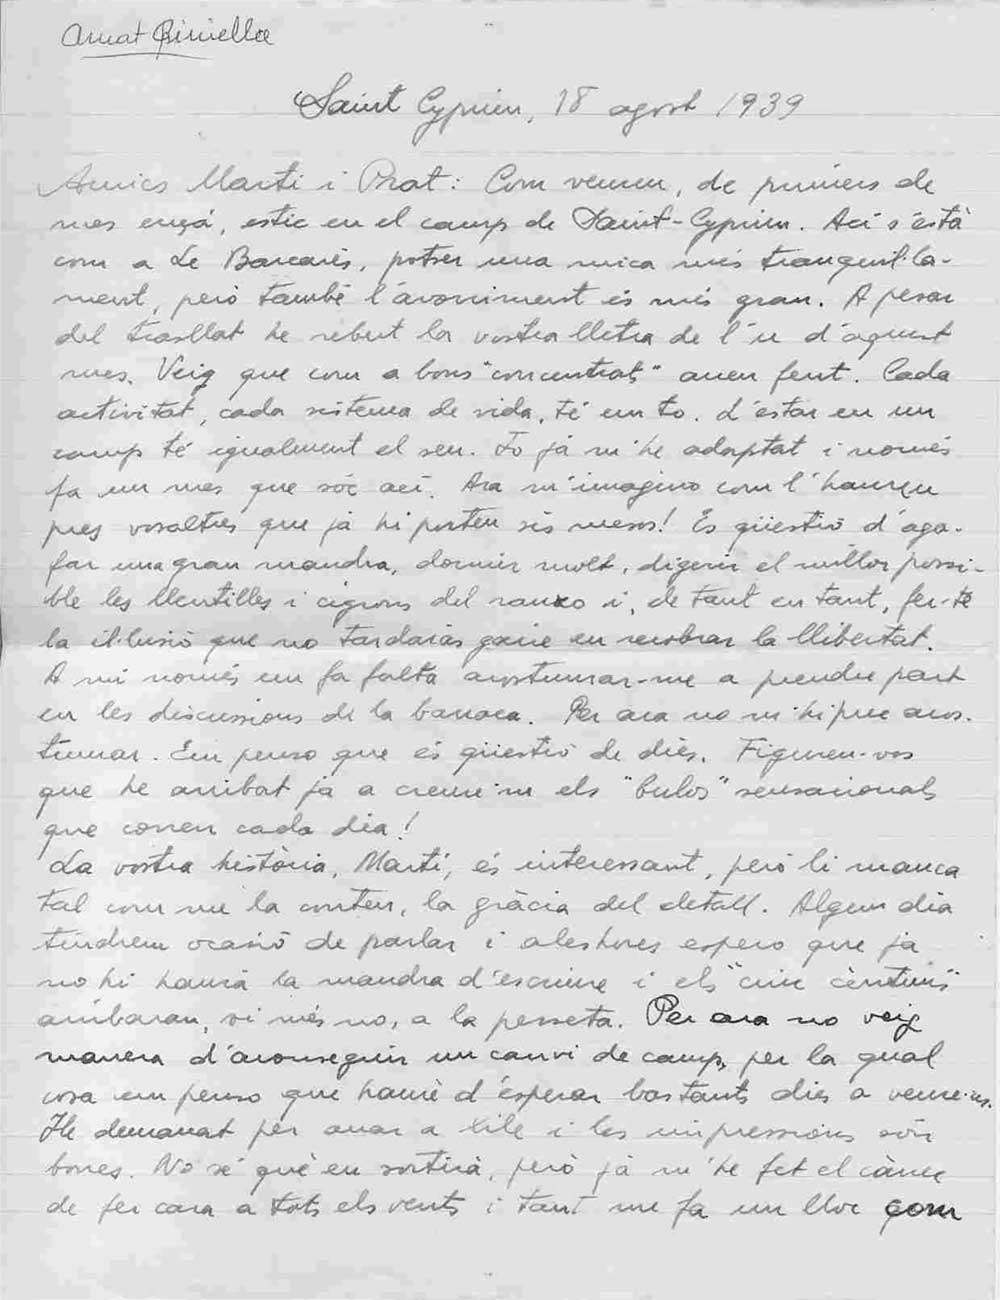 Amat Piniella
Saint Cyprien, 18 agost 1939
Amics Martí i Prat: Com veureu, de primers de
mes ençà, estic en el camp de Saint-Cyprien. Ací s'està
com a Le Barcarès, potser una mica més tranquil·la-
ment, però també l'avorriment és més gran. A pesar
del trasllat he rebut la vostra lletra de l'11 d'aquest
mes. Veig que com a bons "concentrats" aneu fent. Cada
activitat, cada sistema de vida, té un to. L'estar en un
camp té igualment el seu. Jo ja m'he adaptat i només
fa un mes que sóc ací. Ara m'imagino com l'haureu
pres vosaltres que ja hi porteu sis mesos! És qüestió d'aga-
far una gran mandra, dormir molt, digerir el millor possi-
ble les llentilles i cigrons del ranxo i, de tant en tant, fer-te
la il·lusió que no tardaràs gaire en recobrar la llibertat.
A mi només em fa falta acostumar-me a prendre part
en les discussions de la barraca. Per ara no m'hi puc acos-
tumar. Em penso que és qüestió de dies. Figureu-vos
que he arribat ja a creure'm els "bulos" sensacionals
que corren cada dia!
La vostra història, Martí, és interessant, però li manca
tal com me la conteu, la gràcia del detall. Algun dia
tindrem ocasió de parlar i aleshores espero que ja
no hi haurà la mandra d'escriure i els "cinc cèntims"
arribaran, si més no, a la pesseta. Per ara no veig
manera d'aconseguir un canvi de camp, per la qual
cosa em penso que hauré d'esperar bastants dies a veure'us.
He demanat per anar a Xile i les impressions són
bones. No sé què en sortirà, però ja m'he fet el càrrec
de fer cara a tots els vents i tant me fa un lloc com